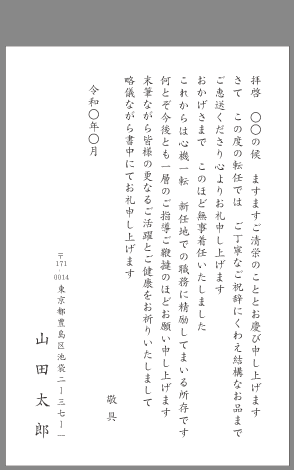 拝啓　〇〇の候　ますますご清栄のこととお慶び申し上げます
さて　この度の転任では　ご丁寧なご祝辞にくわえ結構なお品まで
ご恵送くださり心よりお礼申し上げます
おかげさまで　このほど無事着任いたしました
これからは心機一転　新任地での職務に精励してまいる所存です
何とぞ今後とも一層のご指導ご鞭撻のほどお願い申し上げます
末筆ながら皆様の更なるご活躍とご健康をお祈りいたしまして
略儀ながら書中にてお礼申し上げます
敬具
令和〇年〇月
〒171-0014 東京都豊島区池袋二ー三七ー一
山田太郎